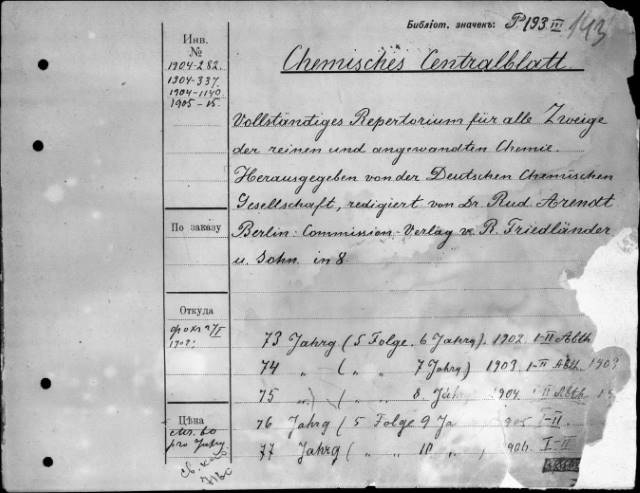 Библіот. значекъ: P193 III 143
Инв.
№
1904-282.
1904-337.
1904-1140
1905-15
Chemisches Centralblatt
Vollständiges Repertorium für alle Zweige
der reinen und angewandten Chemie.
Herausgegeben von der Deutschen Chemischen
Gesellschaft, redigiert von Dr. Rud. Arendt
По заказу
Berlin: Commission-Verlag v. R. Friedländer
u. Sohn. in 8
Откуда
73 Jahrg (5 Folge. 6 Jahrg). 1902. I-II Abth.
74 „ ( „ 7 Jahrg.) 1903. I-II Abth. 1903
75 „ ( „ 8 Jahrg 1904. I-II Abth.
Цѣна
76 Jahrg (5 Folge. 9 Ja 905 I-II.
pro Jahrg.
77 Jahrg ( „ „ 10 „ , 906. I-II